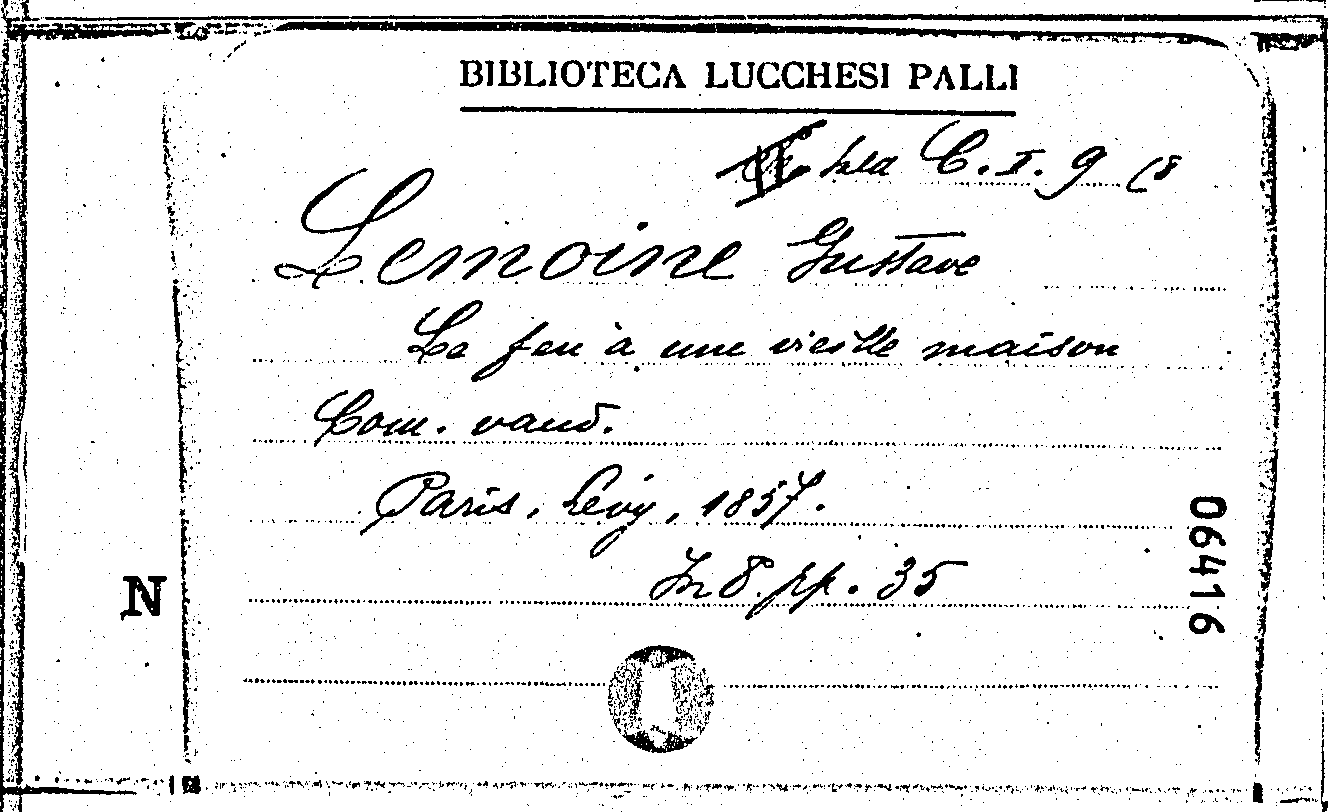 BIBLIOTECA LUCCHESI PALLI
C. I. 9 (8
Lemoine Gustave
Le feu à une vieille maison
Com. vaud.
Paris, Lévy, 1857.
In 8. pp. 35
06416
N